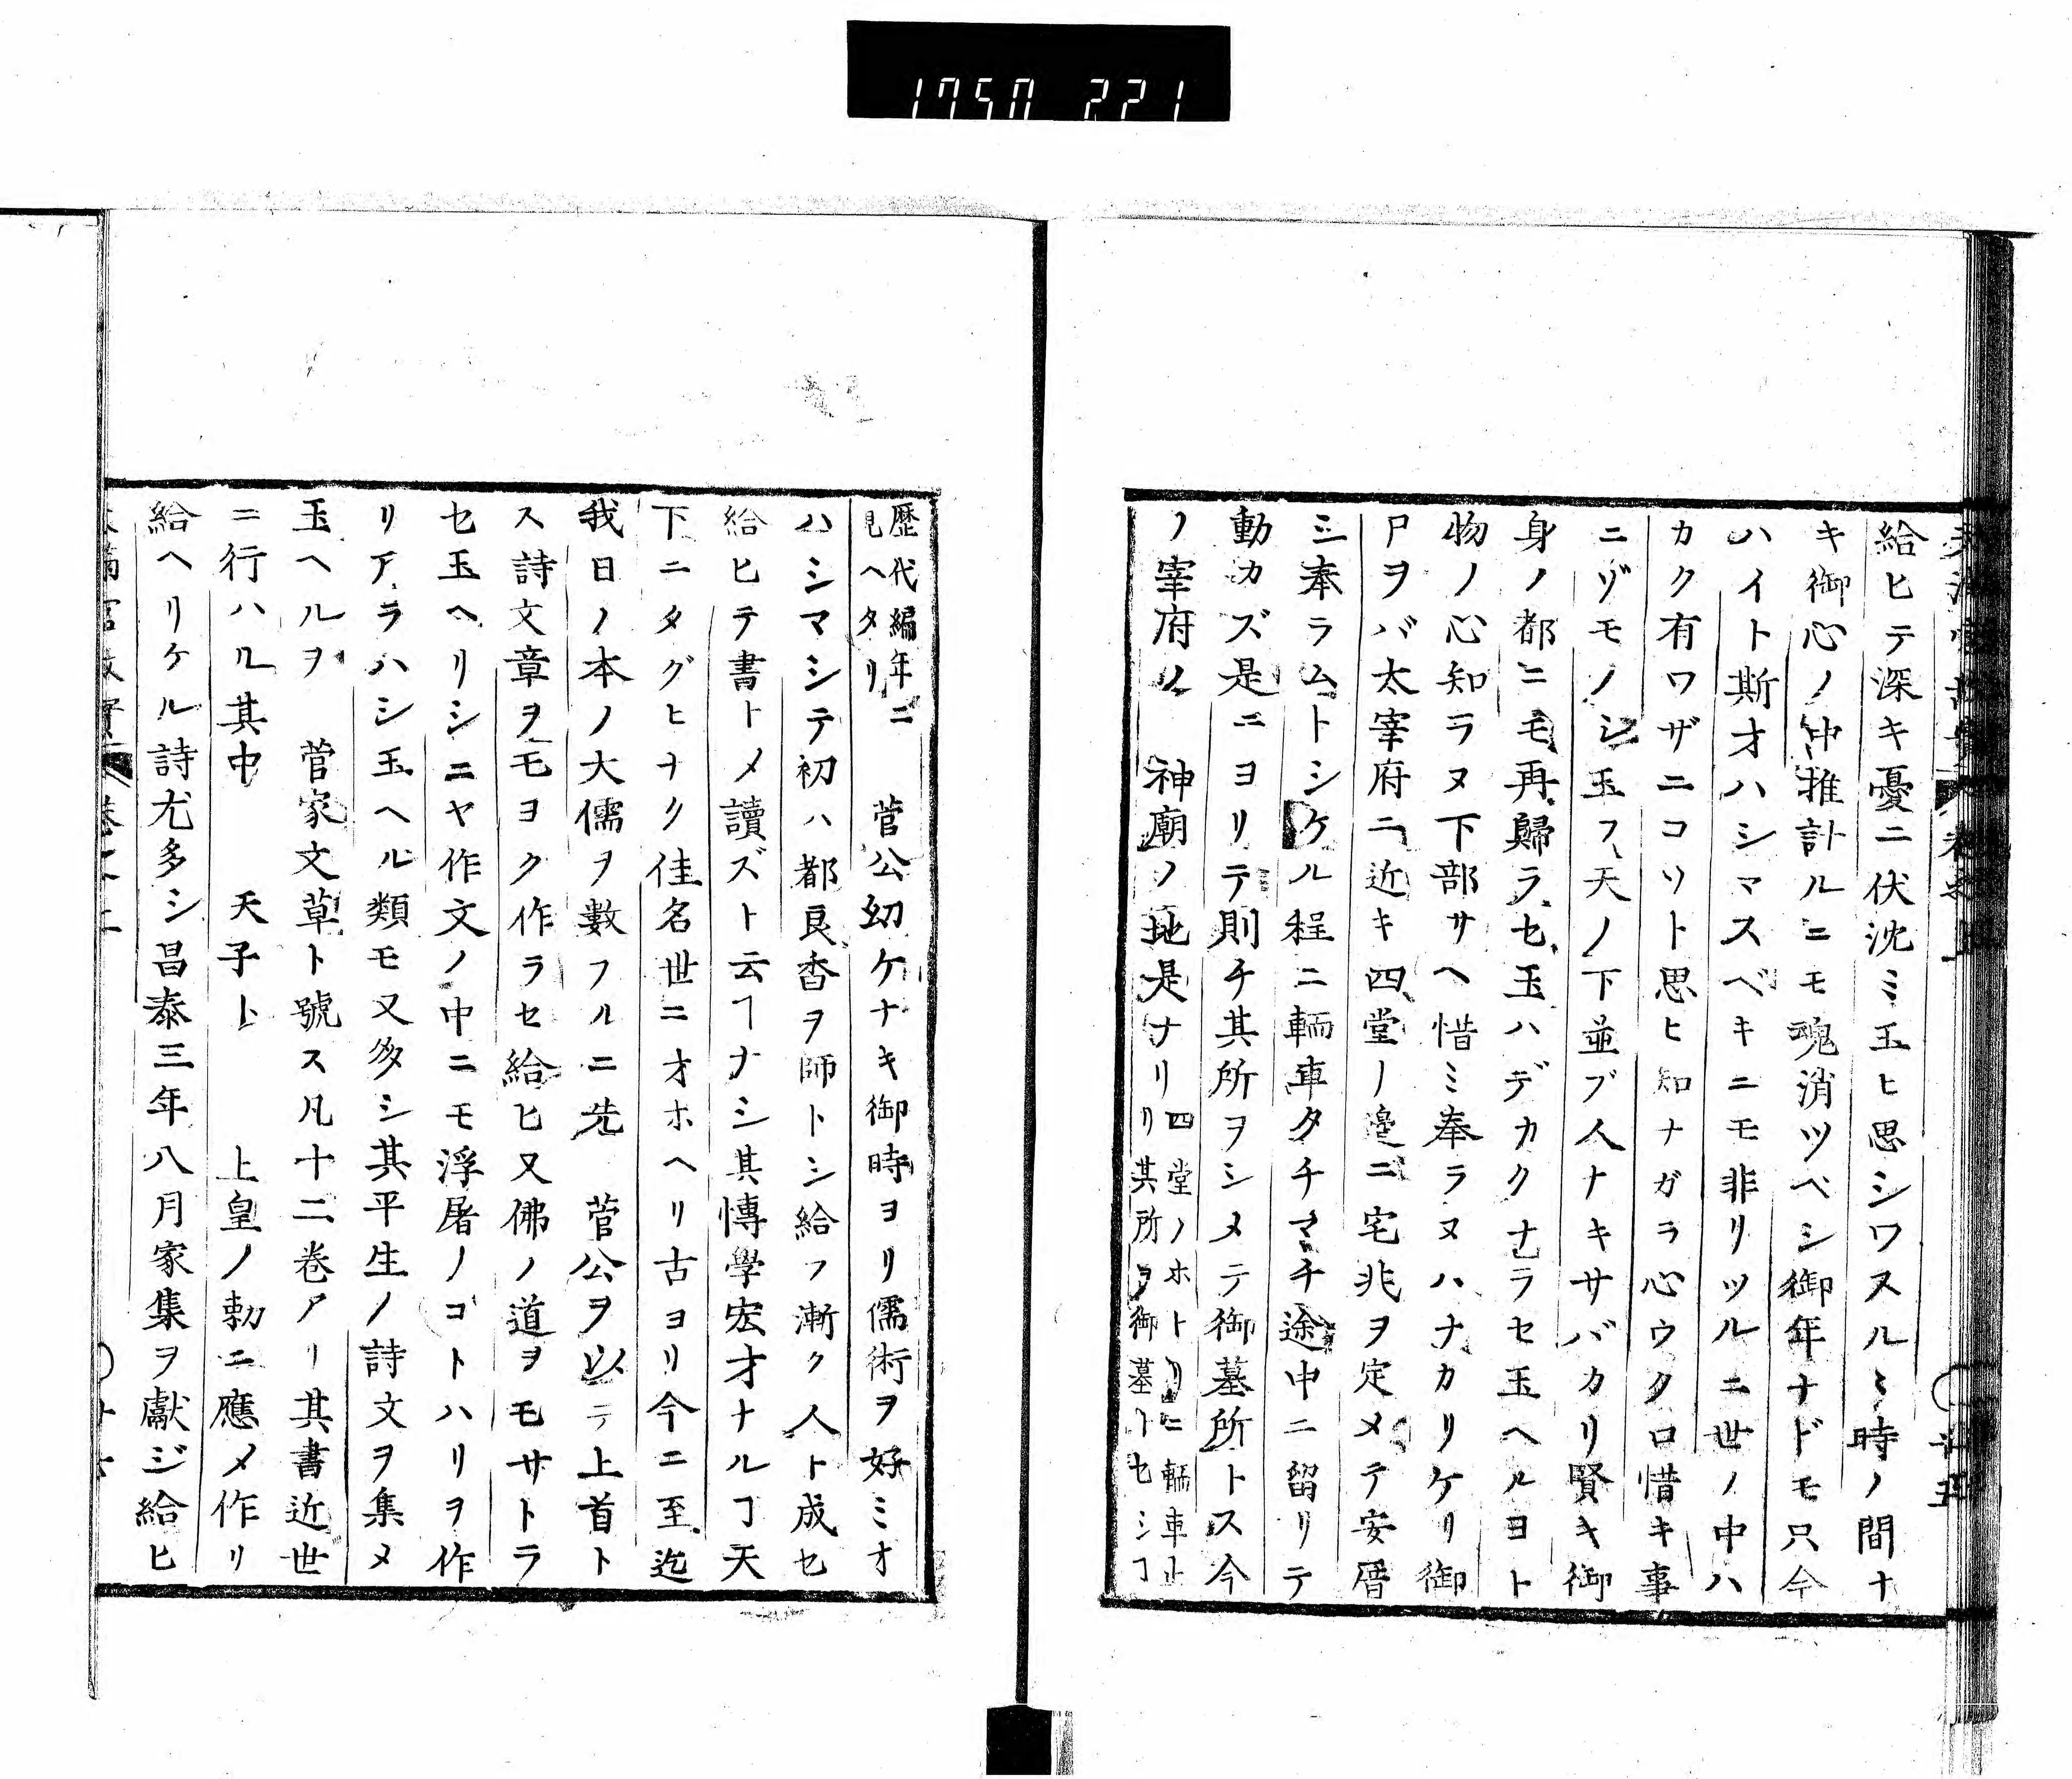 1750 221
給ヒテ深キ憂ニ伏沈ミ玉ヒ思シワスルヽ時ノ間ナ
キ御心ノ中推計ルニモ魂消ツベシ御年ナドモ只今
ハイト斯オハシマスベキニモ非リツルニ世ノ中ハ
カク有ワザニコソト思ヒ知ナガラ心ウク口惜キ事
ニゾモノシ玉フ天ノ下並ブ人ナキサバカリ賢キ御
身ノ都ニモ再歸ラセ玉ハデカクナラセ玉ヘルヨト
物ノ心知ラヌ下部サヘ惜ミ奉ラヌハナカリケリ御
尸ヲバ太宰府ニ近キ四堂ノ邉ニ宅兆ヲ定メテ安厝
シ奉ラムトシケル程ニ輀車タチマチ途中ニ留リテ
動カズ是ニヨリテ則チ其所ヲシメテ御墓所トス今
ノ宰府ノ　神廟ノ地是ナリ四堂ノホトリニ轜車止
リ其所ヲ御墓トセシヿ
歴代編年ニ
見ヘタリ
菅公幼ケナキ御時ヨリ儒術ヲ好ミオ
ハシマシテ初ハ都良香ヲ師トシ給フ漸ク人ト成セ
給ヒテ書トメ讀ズト云ヿナシ其博學宏才ナルヿ天
下ニタグヒナク佳名世ニオホヘリ古ヨリ今ニ至迄
我日ノ本ノ大儒ヲ數フルニ先　菅公ヲ以テ上首ト
ス詩文章ヲモヨク作ラセ給ヒ又佛ノ道ヲモサトラ
セ玉ヘリシニヤ作文ノ中ニモ浮屠ノコトハリヲ作
リアラハシ玉ヘル類モ又多シ其平生ノ詩文ヲ集メ
玉ヘルヲ　菅家文草ト號ス凡十二巻アリ其書近世
ニ行ハル其中　天子ト　上皇ノ勅ニ應メ作リ
給ヘリケル詩尤多シ昌泰三年八月家集ヲ獻ジ給ヒ